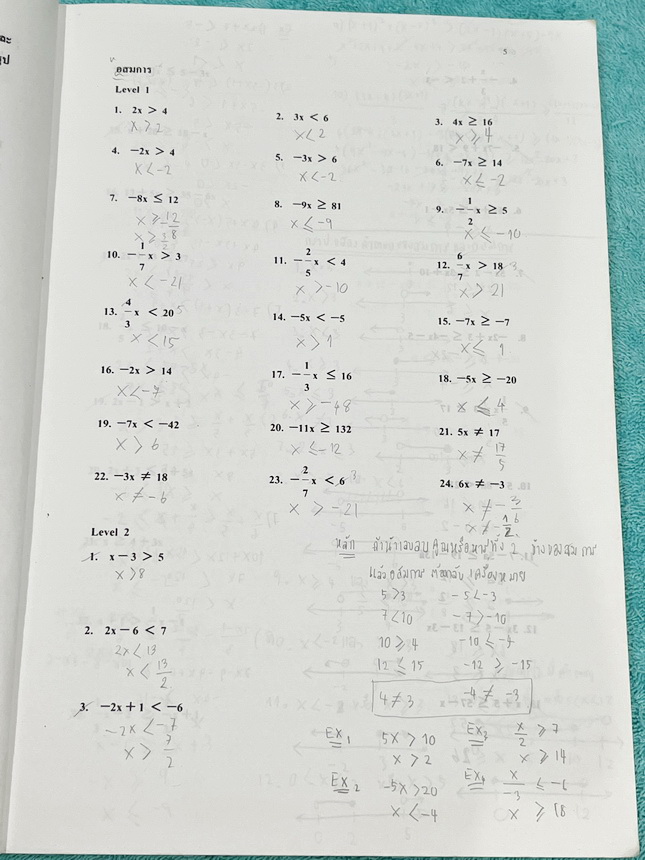 5
อสมการ
Level 1
1. 2x > 4
x > 2
2. 3x < 6
x < 2
3. 4x ≥ 16
x ≥ 4
4. −2x > 4
x < −2
5. −3x > 6
x < −2
6. −7x ≥ 14
x ≤ −2
7. −8x ≤ 12
x ≥ −12/8
8. −9x ≥ 81
x ≤ −9
9. −1/2 x ≥ 5
x ≤ −10
10. −1/7 x > 3
x < −21
11. −2/5 x < 4
x > −10
12. 6/7 x > 18 3
x > 21
13. 4/3 x < 20 5
x < 15
14. −5x < −5
x > 1
15. −7x ≥ −7
x ≤ 1
16. −2x > 14
x < −7
17. −1/3 x ≤ 16
x ≥ −48
18. −5x ≥ −20
x ≤ 4
19. −7x < −42
x > 6
20. −11x ≥ 132
x ≤ −12
21. 5x ≠ 17
x ≠ 17/5
22. −3x ≠ 18
x ≠ −6
23. −2/7 x < 6 3
x > −21
24. 6x ≠ −3
x ≠ −3/6
x ≠ −1/2
Level 2
1. x − 3 > 5
x > 8
2. 2x − 6 < 7
2x < 13
x < 13/2
3. −2x + 1 < −6
−2x < −7
x > 7/2
หลัก ถ้านำลบคูณหรือหารทั้ง 2 ข้างของสมการ
แล้วอสมการ ต้องกลับเครื่องหมาย
5 > 3 −5 < −3
7 < 10 −7 > −10
10 ≥ 4 −10 ≤ −4
12 ≤ 15 −12 ≥ −15
4 ≠ 3 −4 ≠ −3
EX1 5x > 10
x > 2
EX2 −5x > 20
x < −4
EX3 x/2 ≥ 7
x ≥ 14
EX4 x/−3 ≤ −6
x ≥ 18